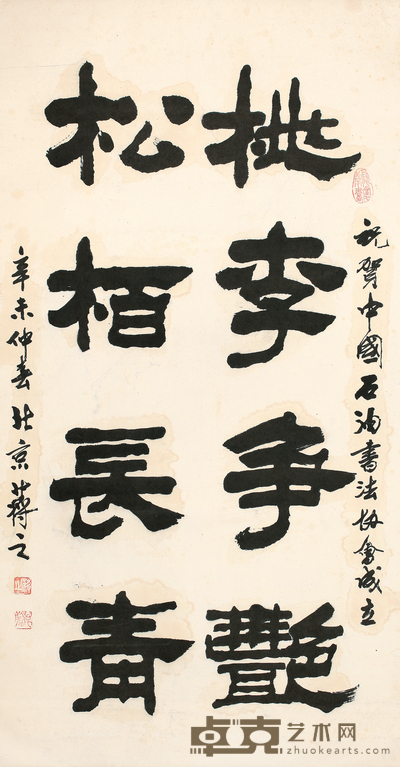 祝贺中國石油書法协會成立
桃李争艷
松栢長青
辛未仲春北京蒋之
卓克艺术网
zhuokearts.com